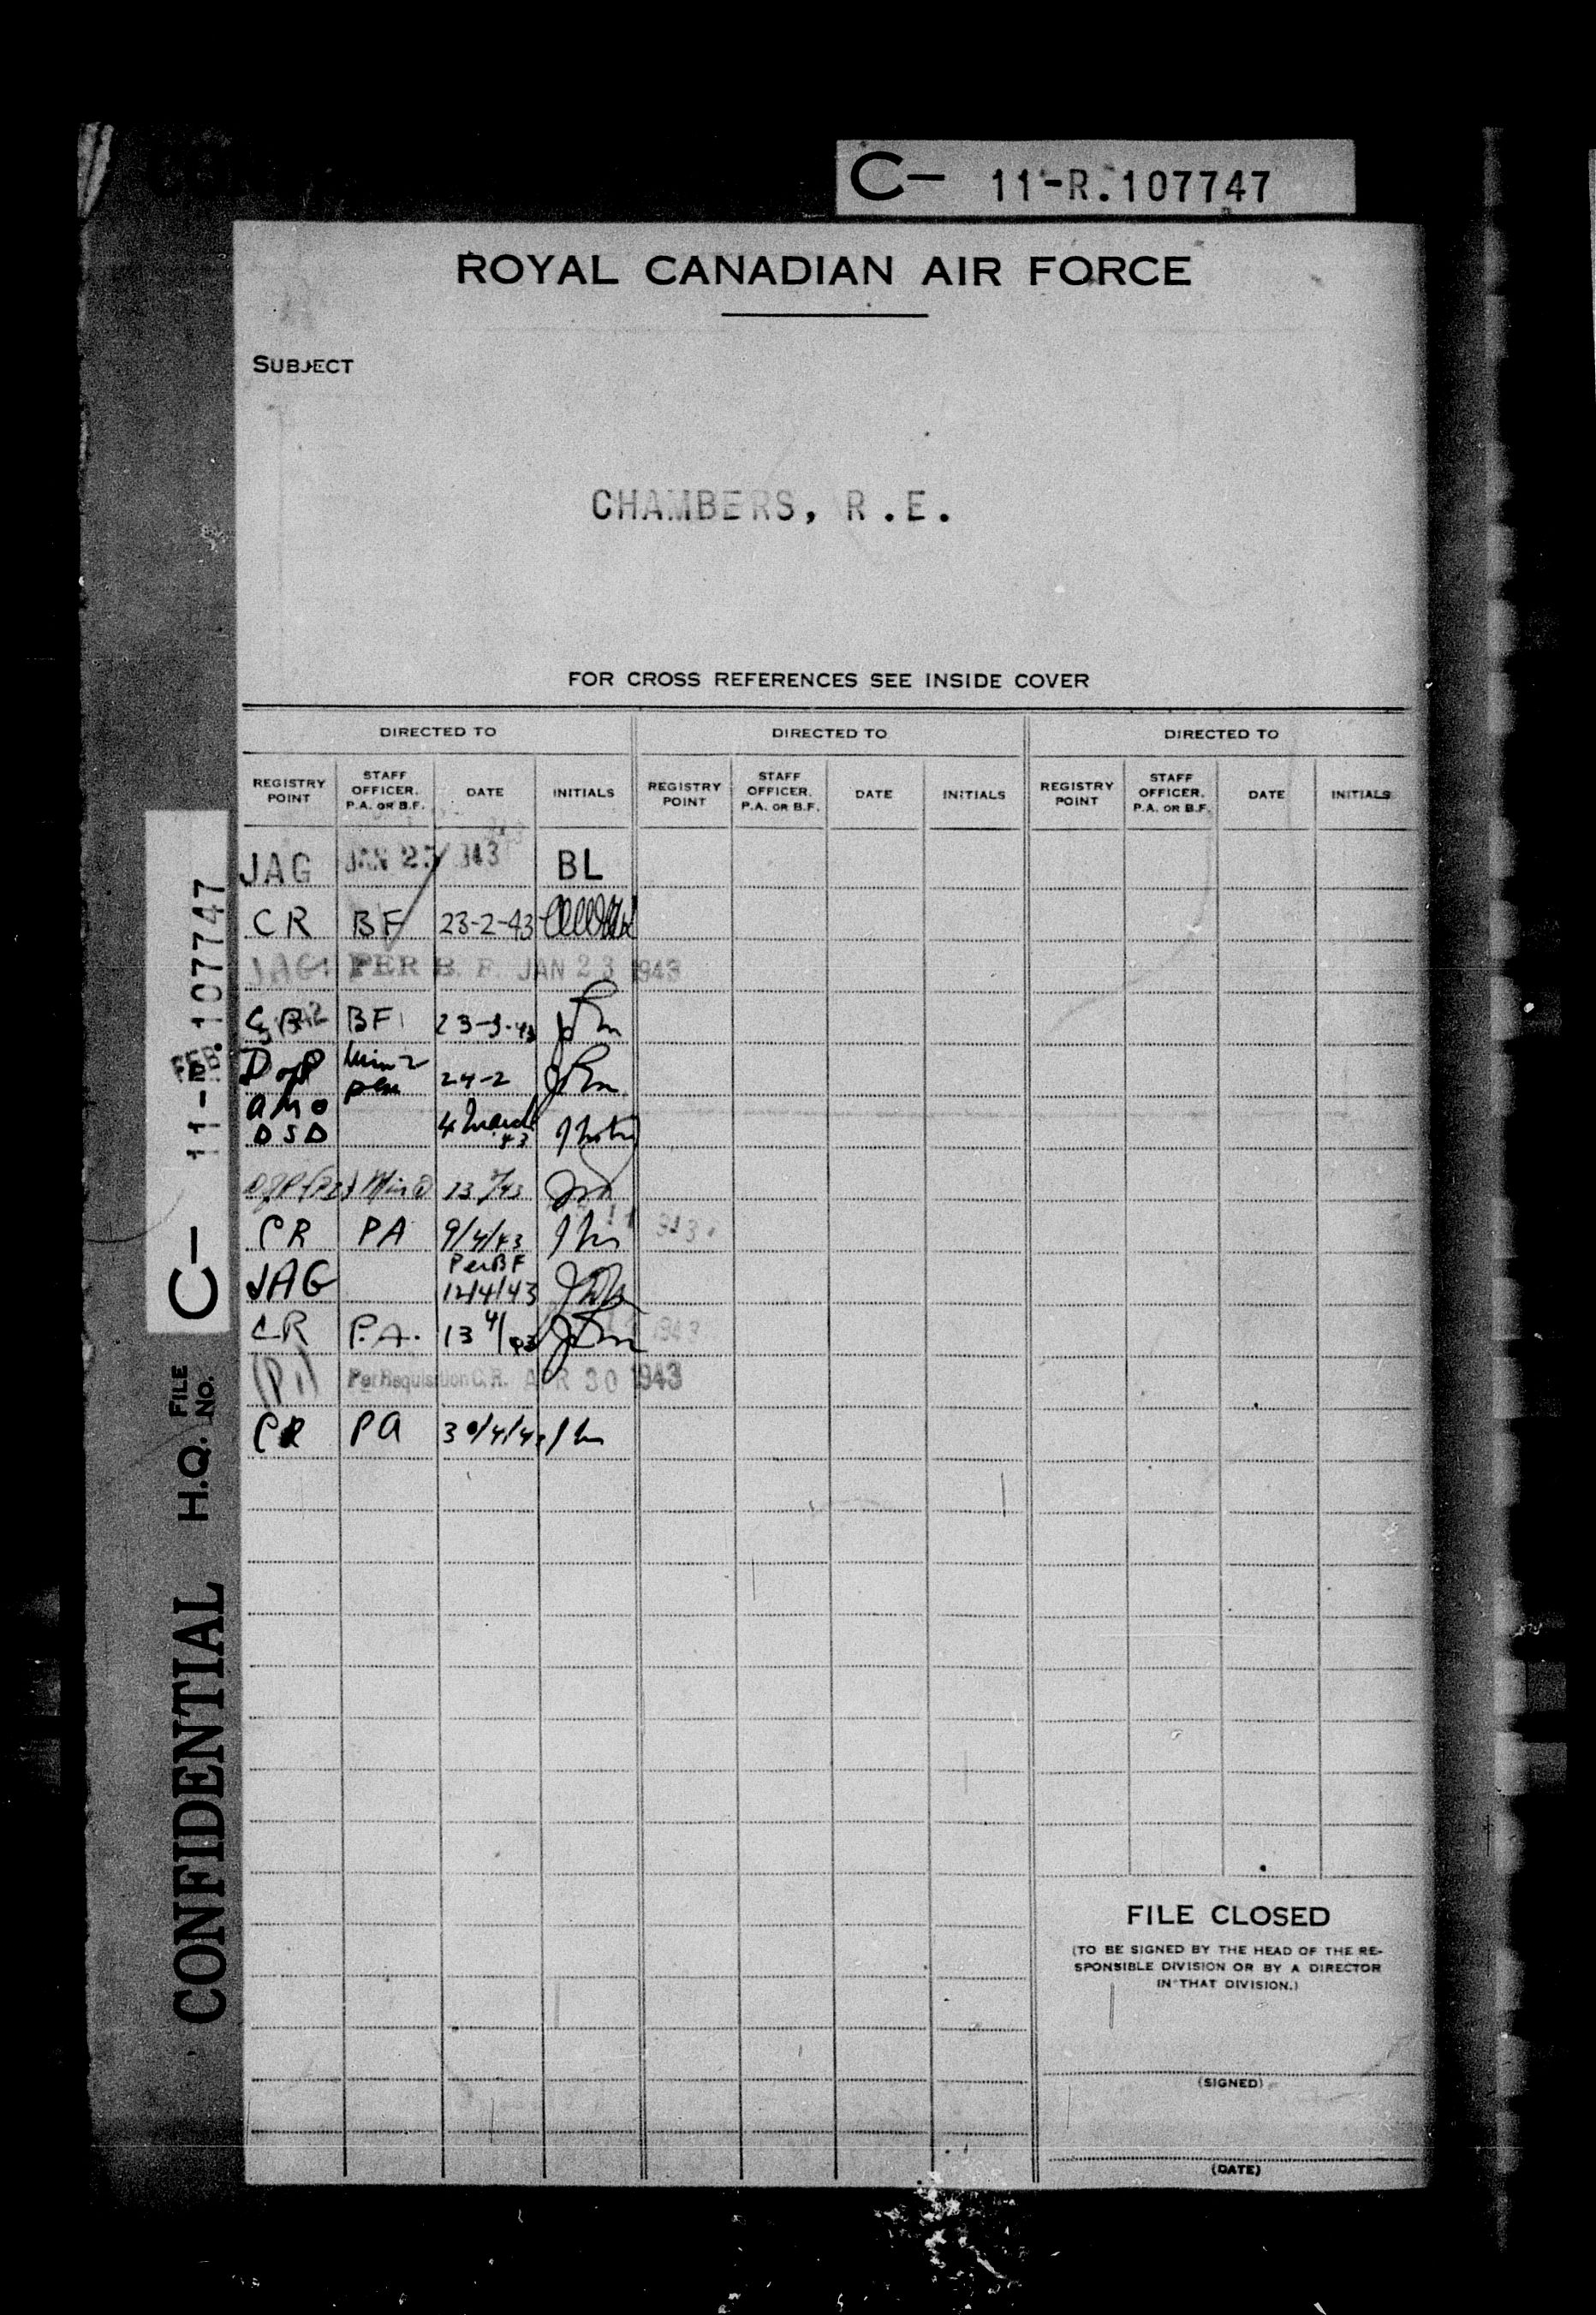 C- 11-R.107747
ROYAL CANADIAN AIR FORCE
SUBJECT
CHAMBERS, R.E.
FOR CROSS REFERENCES SEE INSIDE COVER
DIRECTED TO DIRECTED TO DIRECTED TO
REGISTRY POINT STAFF OFFICER. P.A. OR B.F. DATE INITIALS REGISTRY POINT STAFF OFFICER. P.A. OR B.F. DATE INITIALS REGISTRY POINT STAFF OFFICER. P.A. OR B.F. DATE INITIALS
JAG JAN 943 BL
CR BF 23-2-43
JAG. PER B. F. JAN 23 1943
BF 23-3-43
24-2
AMO
DSD 4 March 43
CR PA 9/4/43
Per BF
JAG 12/4/43
CR P.A. 13 4/43 1943
Per Requisition C.R. APR 30 1943
CR PA 30/4/43
FILE CLOSED
(TO BE SIGNED BY THE HEAD OF THE RE-
SPONSIBLE DIVISION OR BY A DIRECTOR
IN THAT DIVISION.)
(SIGNED)
(DATE)
CONFIDENTIAL H.Q. FILE NO. C- 11-R.107747